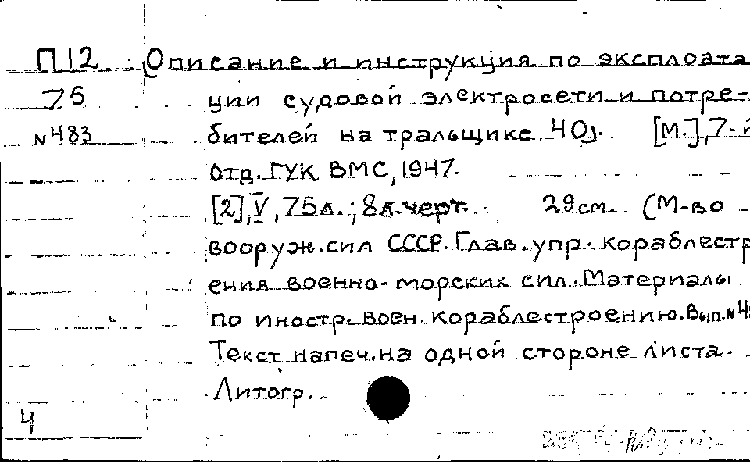 П12 Описание и инструкция по эксплоата
75 ции судовой электросети и потре-
N483 бителей на тральщике 40 [М.], 7-й
отд. ГУК ВМС, 1947.
[2], V, 75 л.; 8 л. черт. 29 см. (М-во
вооруж. сил СССР. Глав. упр. кораблестр
ения военно-морских сил. Материалы
по иностр. воен. кораблестроению. Вып. N4
Текст напеч. на одной стороне листа.
Литогр.
4